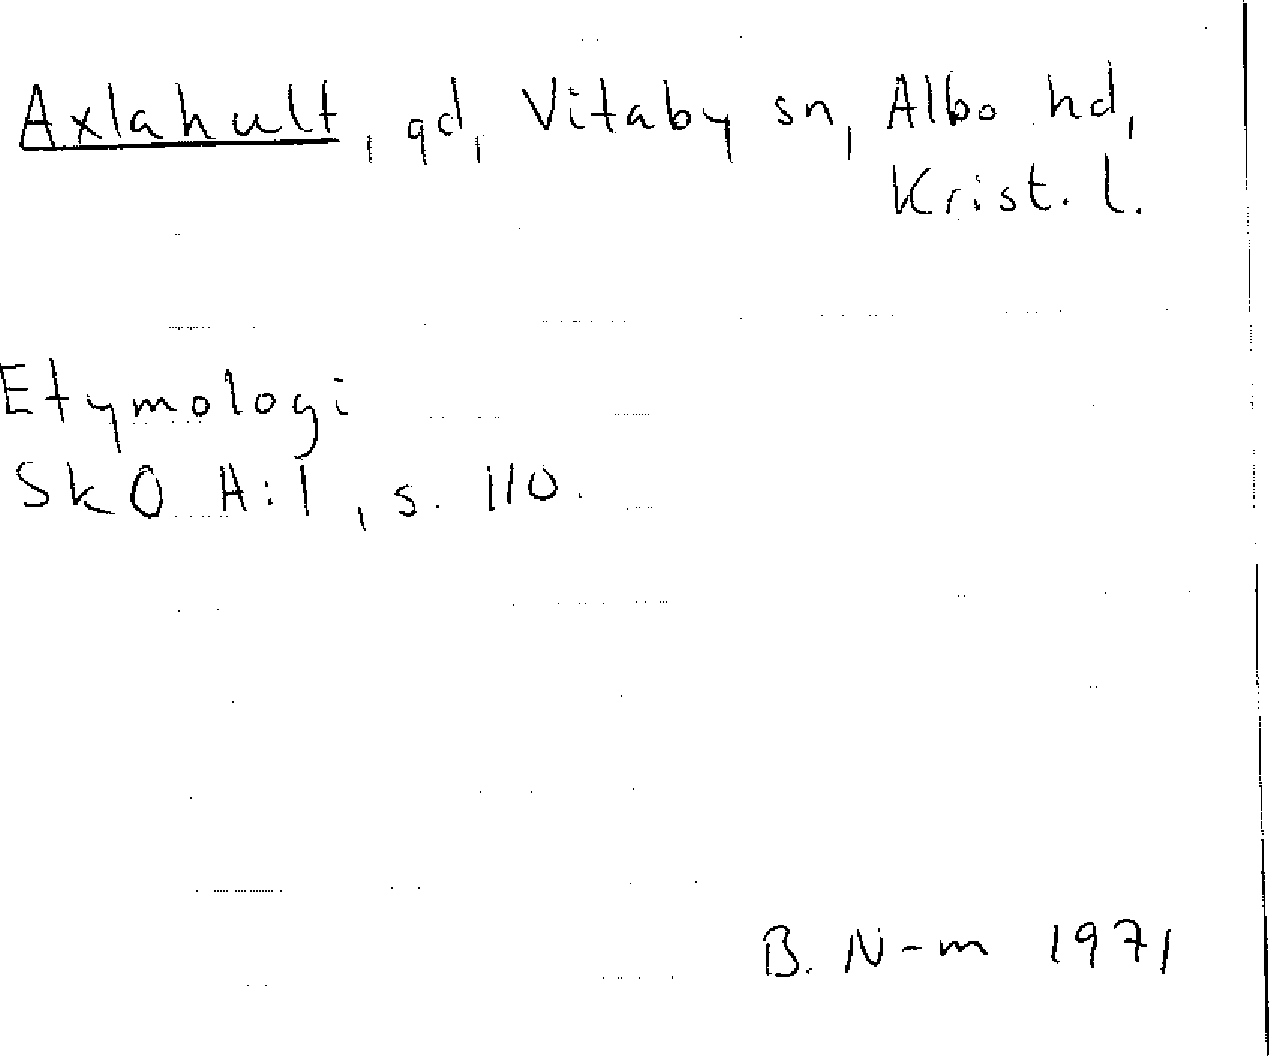 Axlahult, gd, Vitaby sn, Albo hd,
Krist. l.
Etymologi
SkO A:1, s. 110.
B. N-m 1971